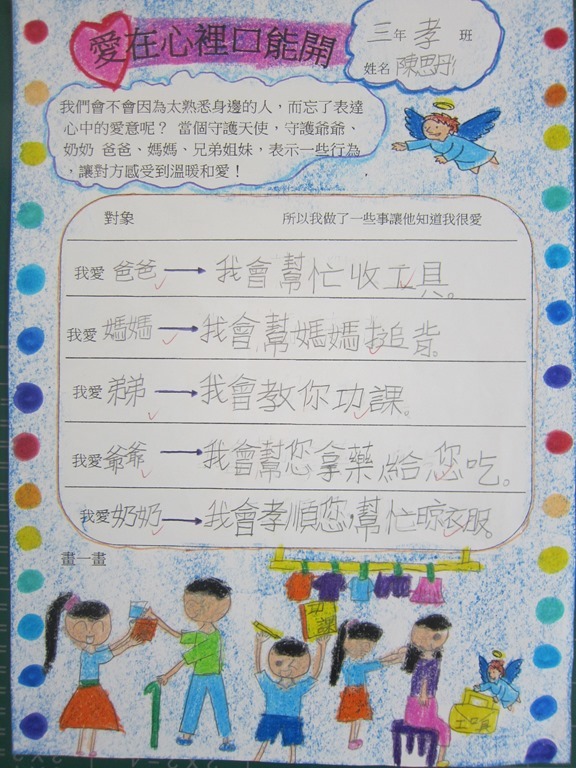 愛在心裡口能開
三年孝班
姓名 陳思彤
我們會不會因為太熟悉身邊的人，而忘了表達
心中的愛意呢？ 當個守護天使，守護爺爺、
奶奶 爸爸、媽媽、兄弟姐妹，表示一些行為
，讓對方感受到溫暖和愛！
對象 所以我做了一些事讓他知道我很愛
我愛 爸爸 → 我會幫忙收工具。
我愛 媽媽 → 我會幫媽媽搥背。
我愛 弟弟 → 我會教你功課。
我愛 爺爺 → 我會幫您拿藥給您吃。
我愛 奶奶 → 我會孝順您幫忙晾衣服。
畫一畫
功
課
工具